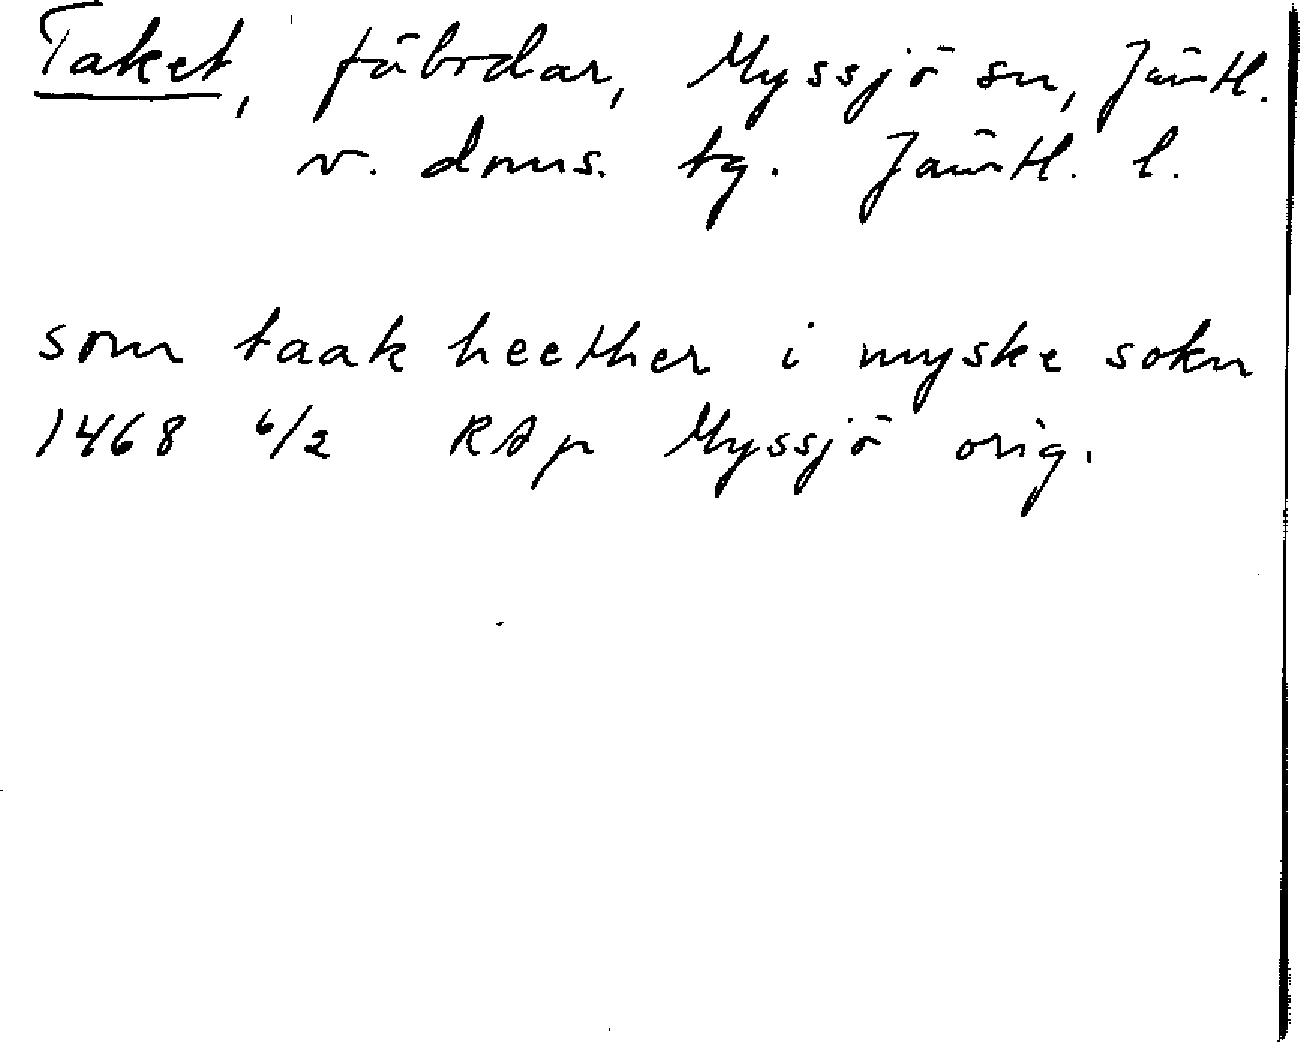 Taket, fäbodar, Myssjö sn, Jämtl.
v. doms. tg. Jämtl. l.
som taak heether i myske sokn
1468 6/2 RAp Myssjö orig.